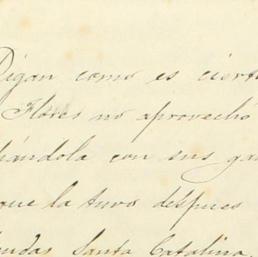 Digan como es cierto
Flores no aprovechó
hándola con sus ga
que la tuvo despues
endas Santa Catalina,